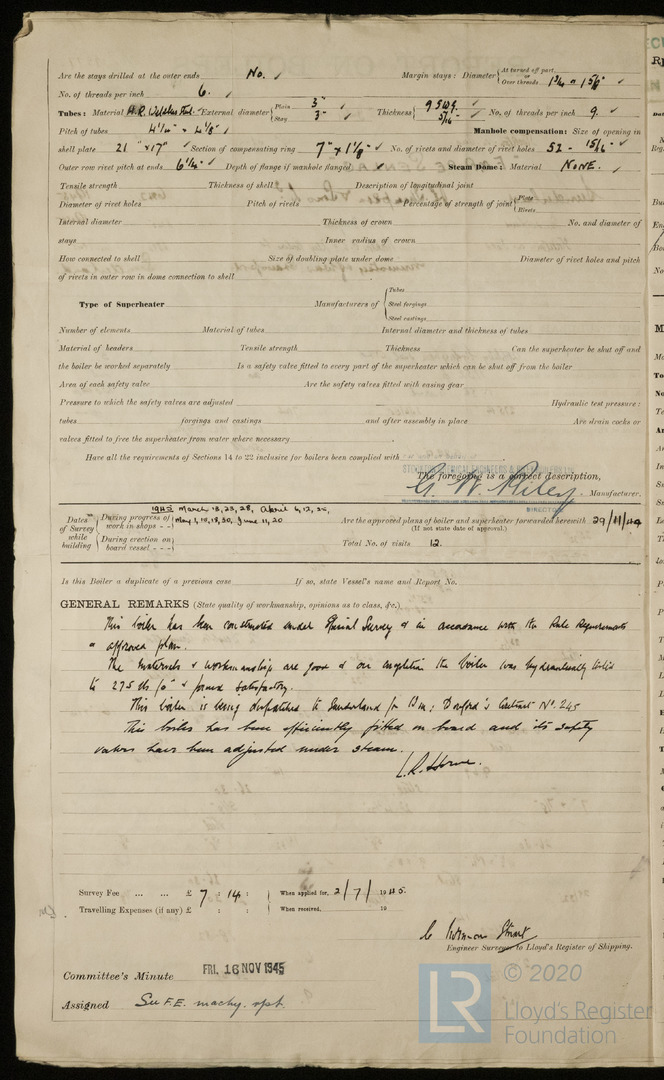 Are the stays drilled at the outer ends No. ✓ Margin stays: Diameter { At turned off part, Over threads 1¾" & 1⅝" ✓
No. of threads per inch 6. ✓
Tubes: Material H.R. External diameter { Plain 3" Stay 3" ✓ Thickness { 9 SWG. 5/16" ✓ No. of threads per inch 9. ✓
Pitch of tubes 4¼" x 4⅛" ✓ Manhole compensation: Size of opening in
shell plate 21" x 17" ✓ Section of compensating ring 7" x 1⅛" ✓ No. of rivets and diameter of rivet holes 52 - 15/16" ✓
Outer row rivet pitch at ends 6¼" ✓ Depth of flange if manhole flanged ✓ Steam Dome: Material NONE. ✓
Tensile strength Thickness of shell Description of longitudinal joint
Diameter of rivet holes Pitch of rivets Percentage of strength of joint { Plate Rivets
Internal diameter Thickness of crown No. and diameter of
stays Inner radius of crown
How connected to shell Size of doubling plate under dome Diameter of rivet holes and pitch
of rivets in outer row in dome connection to shell
Type of Superheater Manufacturers of { Tubes Steel forgings Steel castings
Number of elements Material of tubes Internal diameter and thickness of tubes
Material of headers Tensile strength Thickness Can the superheater be shut off and
the boiler be worked separately Is a safety valve fitted to every part of the superheater which can be shut off from the boiler
Area of each safety valve Are the safety valves fitted with easing gear
Pressure to which the safety valves are adjusted Hydraulic test pressure:
tubes forgings and castings and after assembly in place Are drain cocks or
valves fitted to free the superheater from water where necessary
Have all the requirements of Sections 14 to 22 inclusive for boilers been complied with
The foregoing is a correct description,
G. W. Riley Manufacturer.
DIRECTOR
Dates of Survey while building { During progress of work in shops - - 1945 March 13, 23, 28, April 4, 12, 25, May 1, 10, 18, 30, June 11, 20
During erection on board vessel - - -
Are the approved plans of boiler and superheater forwarded herewith 29/11/44
(If not state date of approval.)
Total No. of visits 12.
Is this Boiler a duplicate of a previous case If so, state Vessel's name and Report No.
GENERAL REMARKS (State quality of workmanship, opinions as to class, &c.)
This boiler has been constructed under Special Survey & in accordance with the Rule Requirements
& approved plan.
The materials & workmanship are good & on completion the boiler was hydraulically tested
to 275 lbs/□" & found satisfactory.
This boiler is being dispatched to Sunderland for Wm: Doxford's Contract No. 245
This boiler has been efficiently fitted on board and its safety
valves have been adjusted under steam.
L.R. Horne.
Survey Fee ... ... £ 7 : 14 : When applied for, 2/7/1945.
Travelling Expenses (if any) £ : : When received, 19
Engineer Surveyor to Lloyd's Register of Shipping.
Committee's Minute FRI. 16 NOV 1945
Assigned See F.E. machy. rpt.
LR © 2020
Lloyd's Register
Foundation